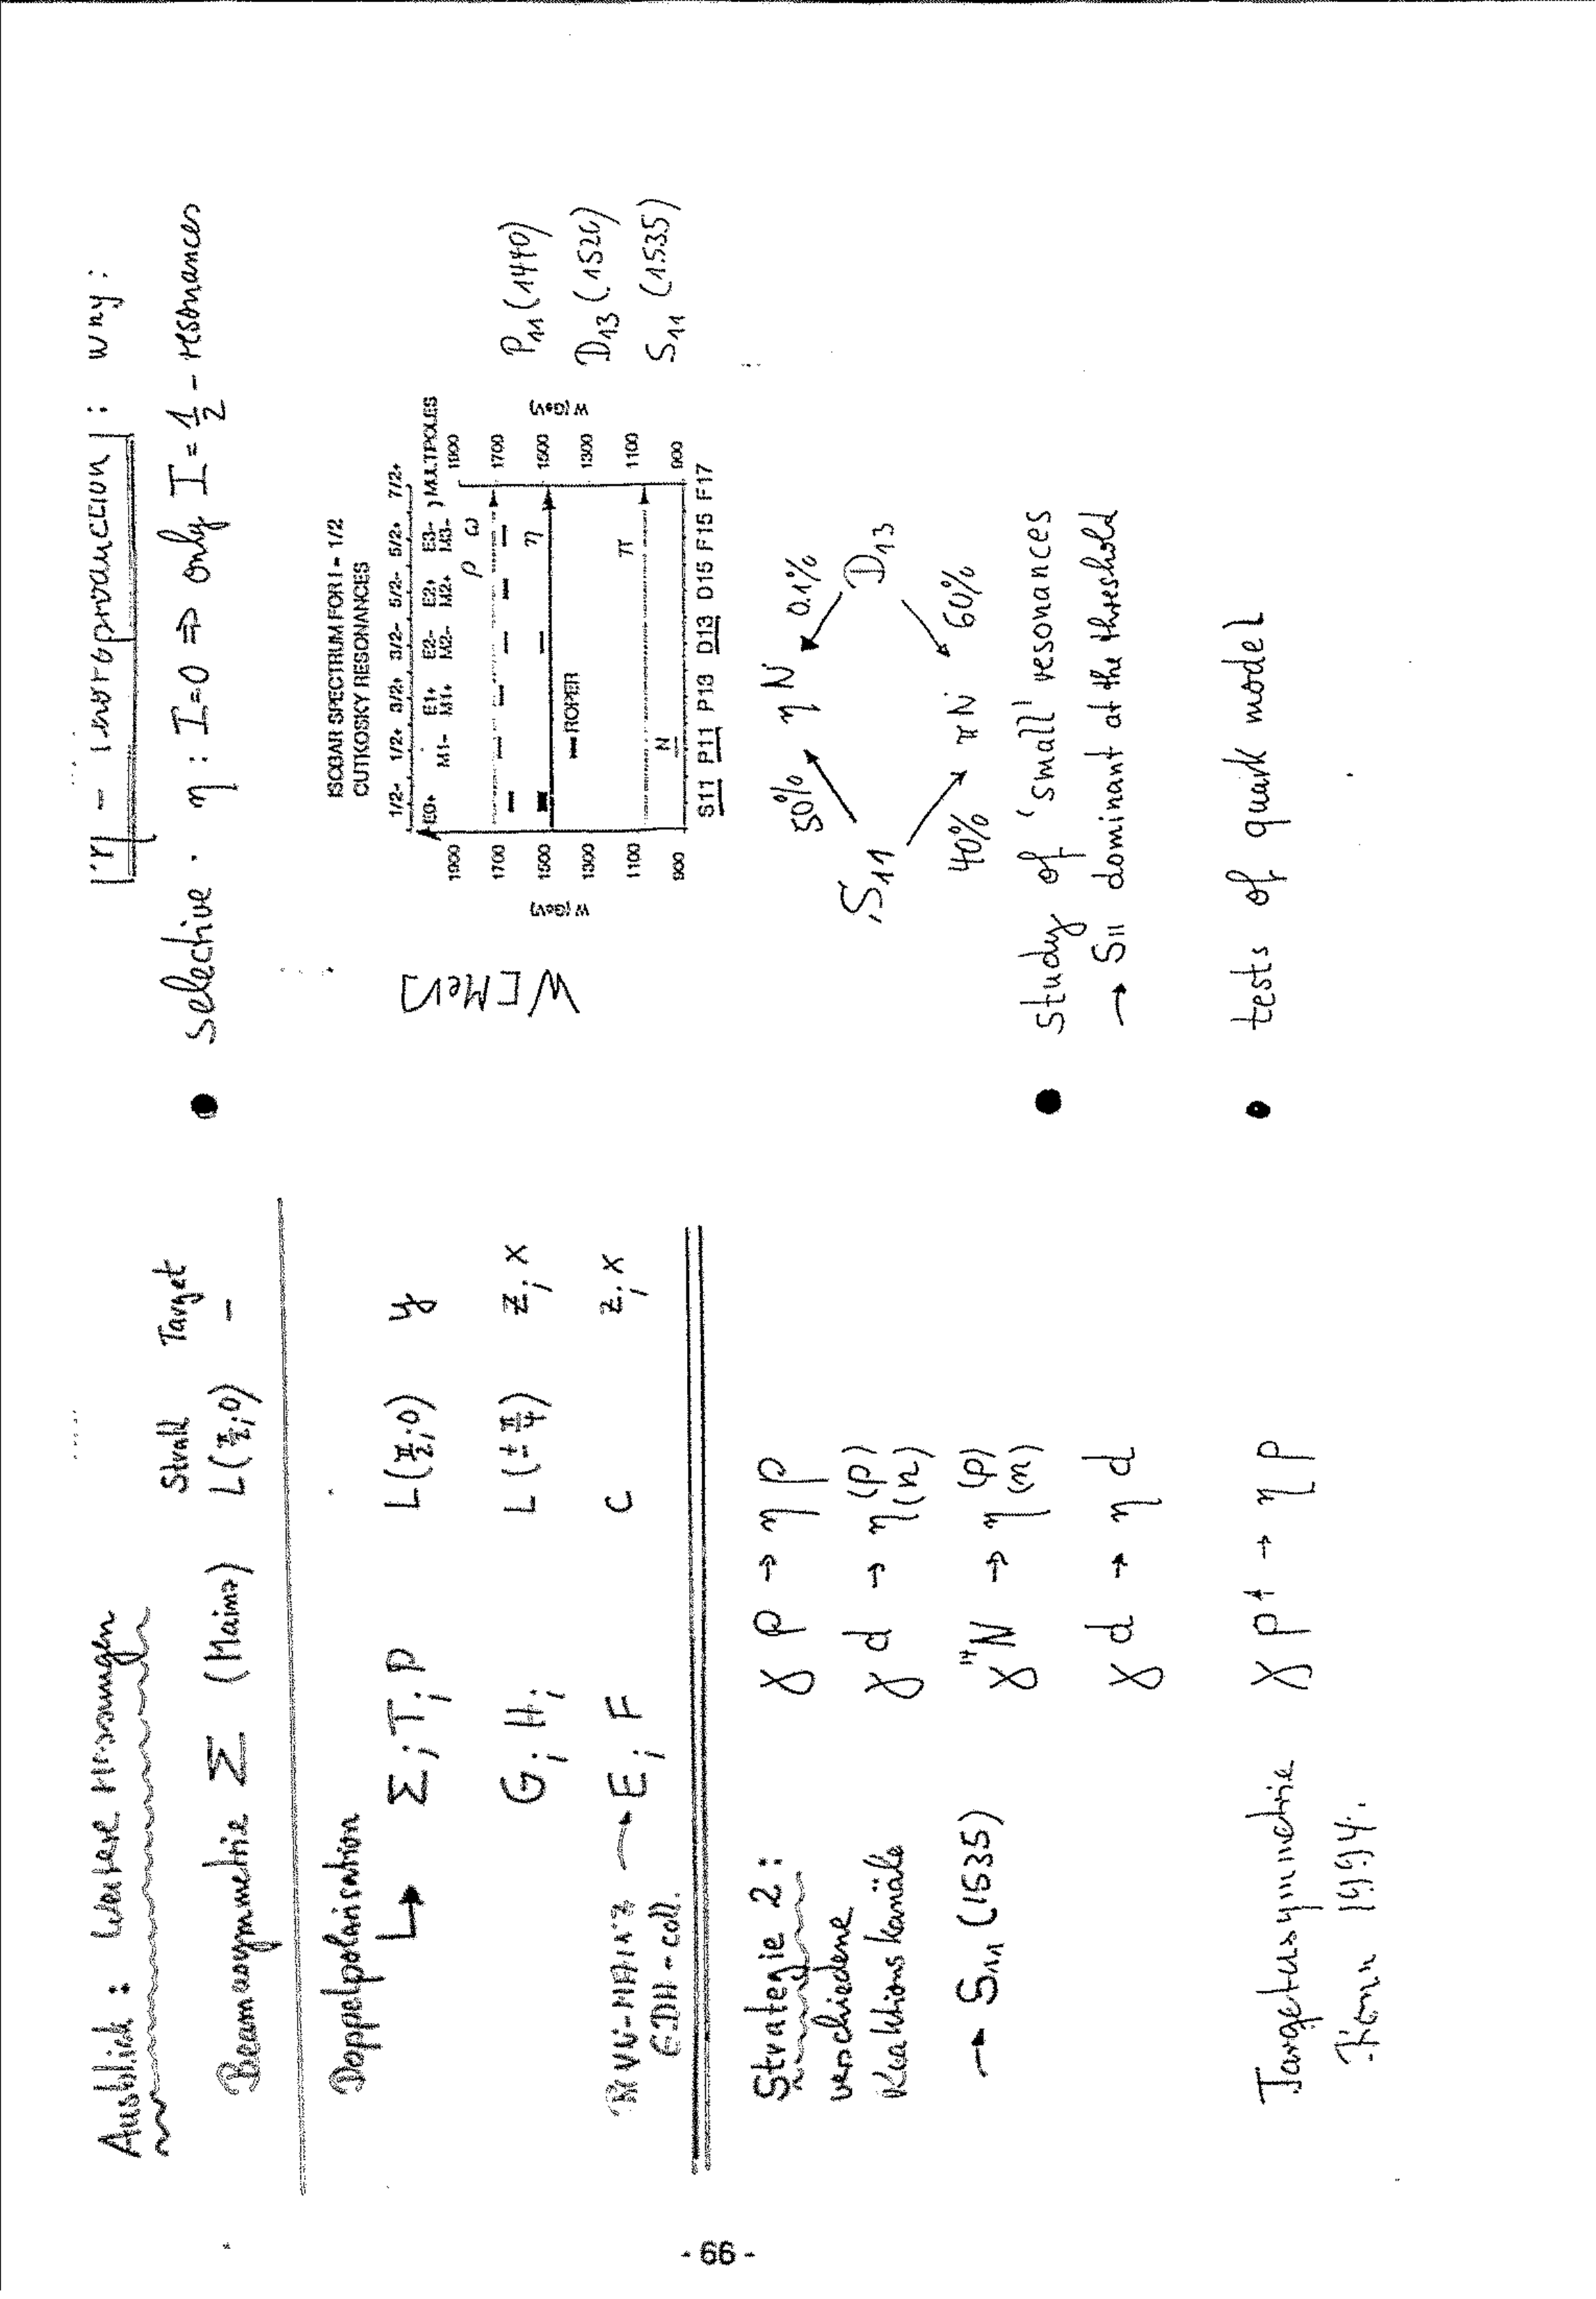 Ausblick : weitere Messungen
Strahl Target
Beamasymmetrie Σ (Mainz) L(π/2;0) -
Doppelpolarisation
↳ Σ; T; P L(π/2;0) y
G; H; L(±π/4) z; x
→ E; F C z; x
-coll.
Strategie 2 :
verschiedene
Reaktionskanäle
→ S11 (1535)
γ p → η p
γ d → η (p)
(n)
γ 14N → η (p)
(n)
γ d → η d
Targetasymmetrie γ p↑ → η p
Bonn 1994.
η - photoproduction : why :
• selective . η : I=0 ⇒ only I = 1/2 - resonances
ISOBAR SPECTRUM FOR I = 1/2
CUTKOSKY RESONANCES
1/2- 1/2+ 3/2+ 3/2- 5/2- 5/2+ 7/2+
E0+ E1+ E2- E2+ E3-
M1- M1+ M2- M2+ M3- ) MULTIPOLES
1900 1900
ρ ω
1700 1700
η
1500 1500
ROPER
1300 1300
π
1100 1100
N
900 900
S11 P11 P13 D13 D15 F15 F17
W (GeV) W (GeV)
W [MeV]
P11 (1440)
D13 (1520)
S11 (1535)
50% η N 0.1%
S11 D13
40% π N 60%
• study of 'small' resonances
→ S11 dominant at the threshold
• tests of quark model
- 66 -